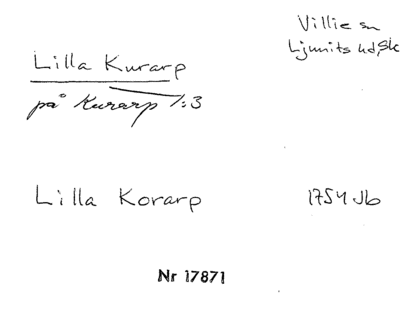 Villie sn
Ljunits hd, Sk
Lilla Kurarp
på Kurarp 1:3
Lilla Korarp 1754 Jb
Nr 17871